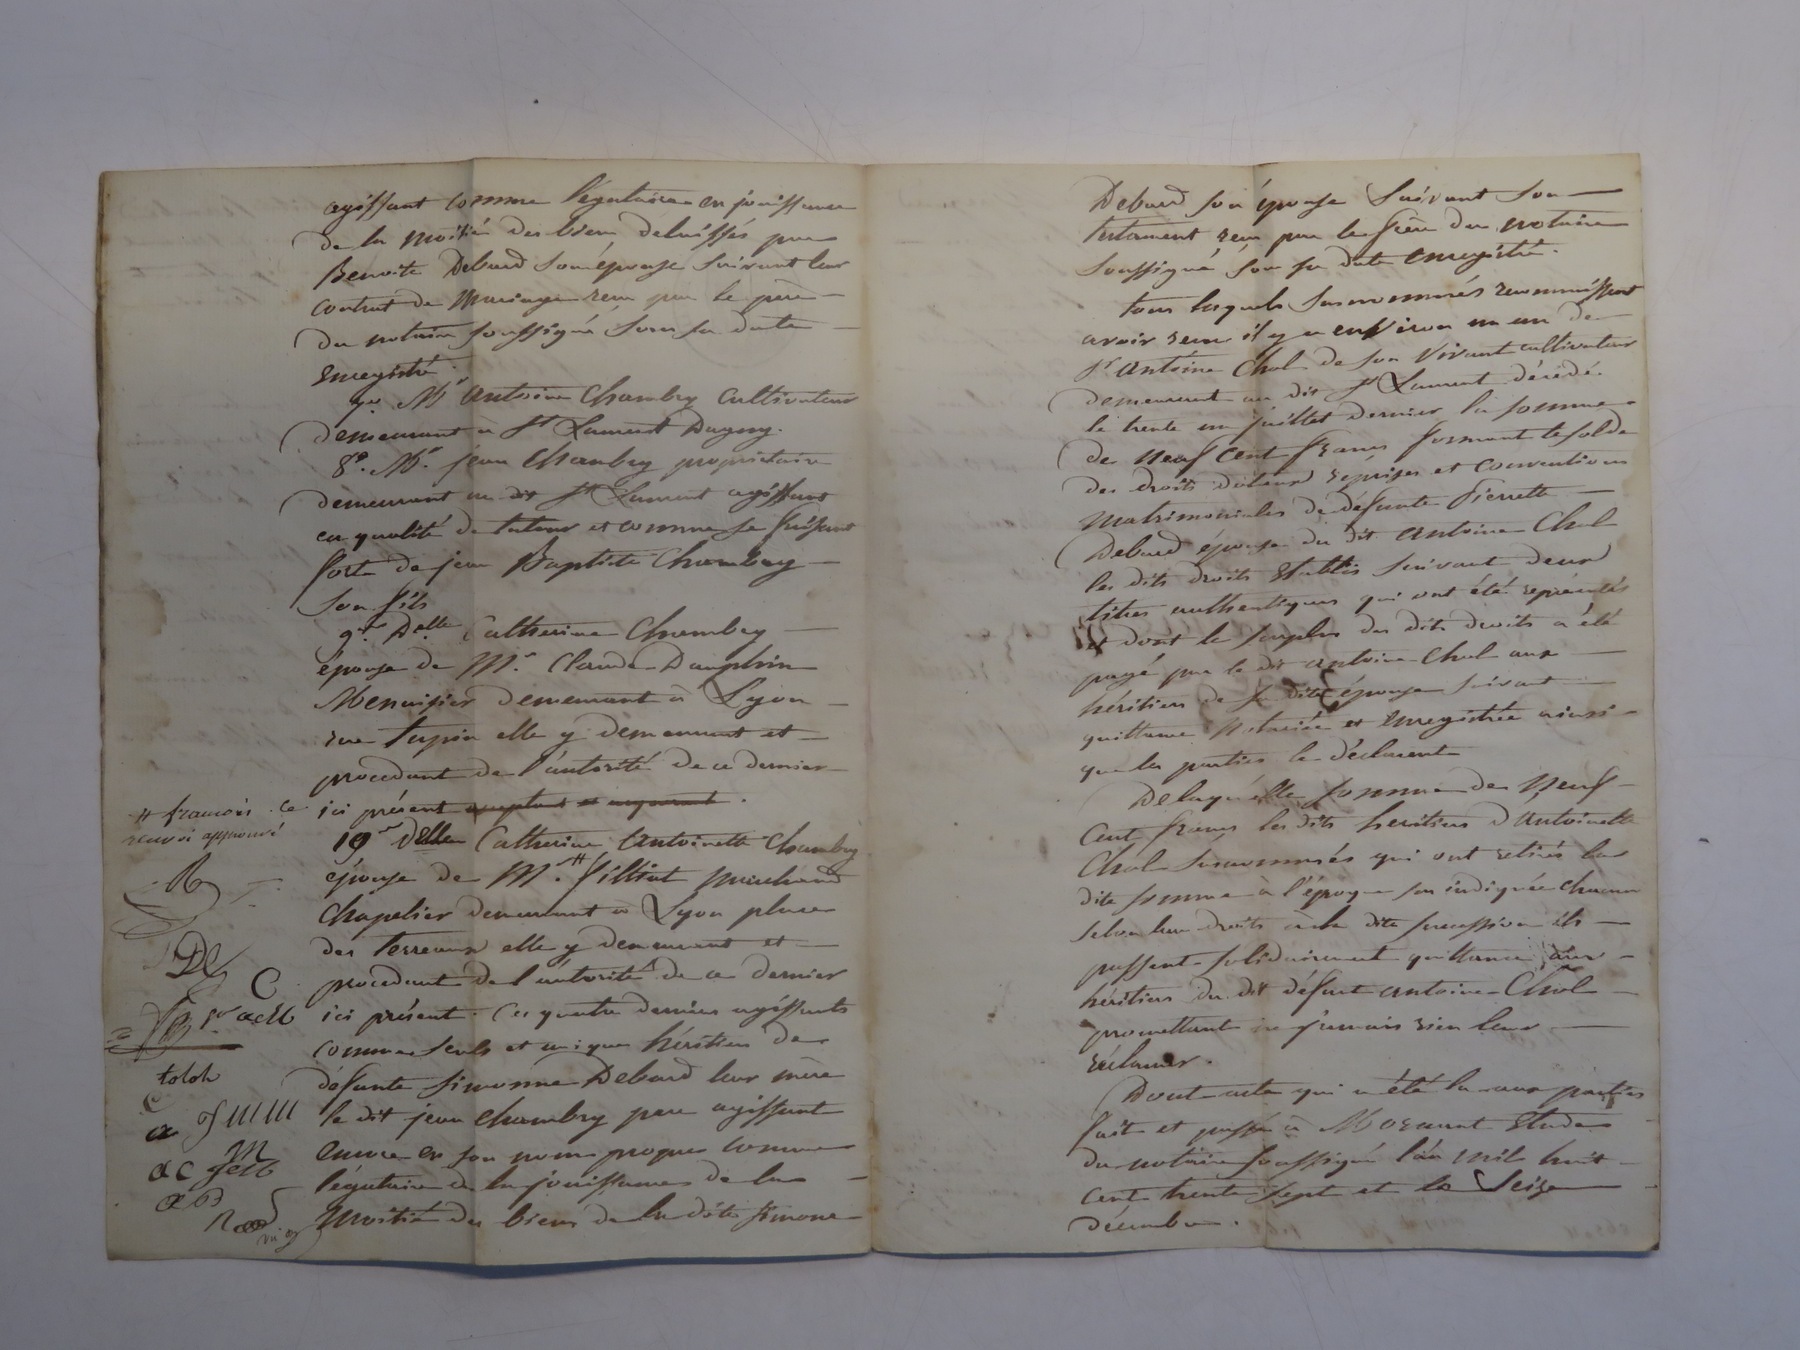 agissant comme légataire en jouissance
de la moitié des biens délaissés par
Benoite Debard son épouse suivant leur
contrat de mariage reçu par le père
du notaire soussigné sous sa date
enregistré.
7º. Mr Antoine Chambry cultivateur
demeurant à St Laurent Dagny.
8º. Mr. jean Chambry propriétaire
demeurant au dit St Laurent agissant
en qualité de tuteur et comme se faisant
fort de jean Baptiste Chambry
son fils
9º. Delle Catherine Chambry
épouse de Mr. Claude Dauphin
Menuisier demeurant à Lyon
rue Tupin elle y demeurant et
procedant de l'autorité de ce dernier
ici présent acceptant et
10º Delle Catherine Antoinette Chambry
épouse de Mr. # Filliat marchand
Chapelier demeurant à Lyon place
des Terreaux elle y demeurant et
procedant de l'autorité de ce dernier
ici présent. Ces quatre derniers agissants
comme seuls et uniques héritiers de
défunte Simonne Debard leur mère
le dit jean Chambry père agissant
encore en son nom propre comme
légataire de la jouissance de la
moitié des biens de la dite Simone
# francois ce
renvoi approuvé
R
DC
C
A
C
a
M
ac
aB
Debard son épouse suivant son
testament reçu par le père du notaire
soussigné sous sa date enregistré.
tous lesquels susnommés reconnaissent
avoir reçu il y a environ un an de
Sr Antoine Chol de son vivant cultivateur
demeurant au dit St Laurent décédé
le trente un juillet dernier la somme
de neuf cent francs formant le solde
des droits dotaux reprises et conventions
matrimoniales de défunte Pierrette
Debard épouse du dit Antoine Chol
les dits droits établis suivant deux
titres authentiques qui ont été représentés
et dont le surplus des dits droits a été
payé par le dit Antoine Chol aux
héritiers de sa dite épouse suivant
quittance notariée et enregistrée ainsi
que les parties le déclarent
Delaquelle somme de neuf
cent francs les dits heritiers d'Antoinette
Chol susnommés qui ont retirés la
dite somme à l'époque sus indiquée chacun
selon leur droits à la dite succession ils
passent solidairement quittance aux
héritiers du dit défunt Antoine Chol
promettant ne jamais rien leur
réclamer.
Dont acte qui a été lu aux parties
fait et passé à Mornant Etude
du notaire soussigné l'an mil huit
cent trente sept et le Seize
décembre.